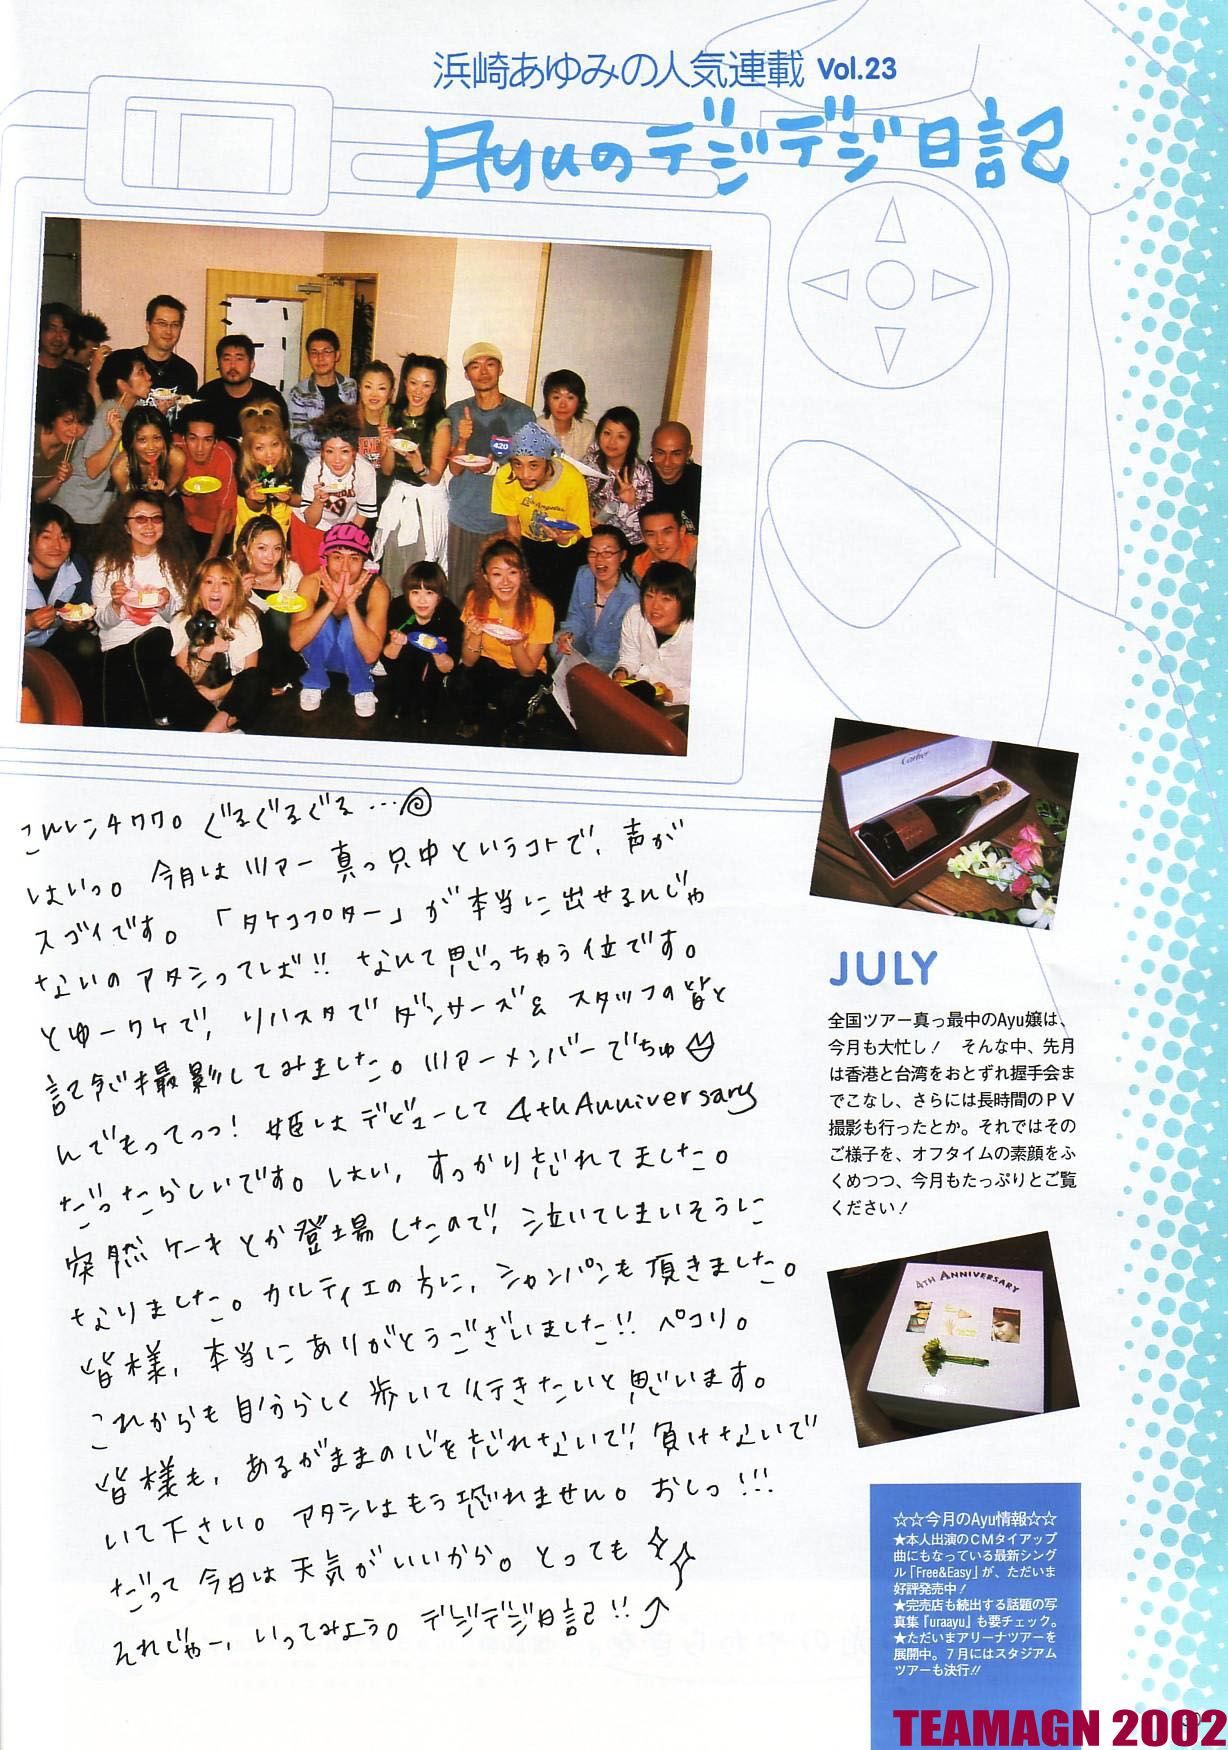 浜崎あゆみの人気連載 Vol.23
Ayuのデジデジ日記
420
Cartier
こんにチワワ。ぐるぐるぐる…
はいっ。今月はツアー真っ只中というコトで、声が
スゴイです。「タケコプター」が本当に出せるんじゃ
ないのアタシってば!! なんて思っちゃう位です。
とゆーワケで、リハスタでダンサーズ&スタッフの皆と
記念撮影してみました。ツアーメンバーでちゅ
んでもってっっ! 姫はデビューして4th Anniversary
だったらしいです。はい、すっかり忘れてました。
突然ケーキとか登場したので、泣いてしまいそうに
なりました。カルティエの方に、シャンパンも頂きました。
皆様、本当にありがとうございました!! ペコリ。
これからも自分らしく歩いて行きたいと思います。
皆様も、あるがままの心を忘れないで、負けないで
いて下さい。アタシはもう恐れません。おしっ!!!
だって今日は天気がいいから。とっても
それじゃー、いってみよう。デジデジ日記!!
JULY
全国ツアー真っ最中のAyu嬢は、
今月も大忙し! そんな中、先月
は香港と台湾をおとずれ握手会ま
でこなし、さらには長時間のPV
撮影も行ったとか。それではその
ご様子を、オフタイムの素顔をふ
くめつつ、今月もたっぷりとご覧
ください!
4TH ANNIVERSARY
☆☆今月のAyu情報☆☆
★本人出演のCMタイアップ
曲にもなっている最新シング
ル「Free&Easy」が、ただいま
好評発売中!
★完売店も続出する話題の写
真集『uraayu』も要チェック。
★ただいまアリーナツアーを
展開中。7月にはスタジアム
ツアーも決行!!
TEAMAGN 2002